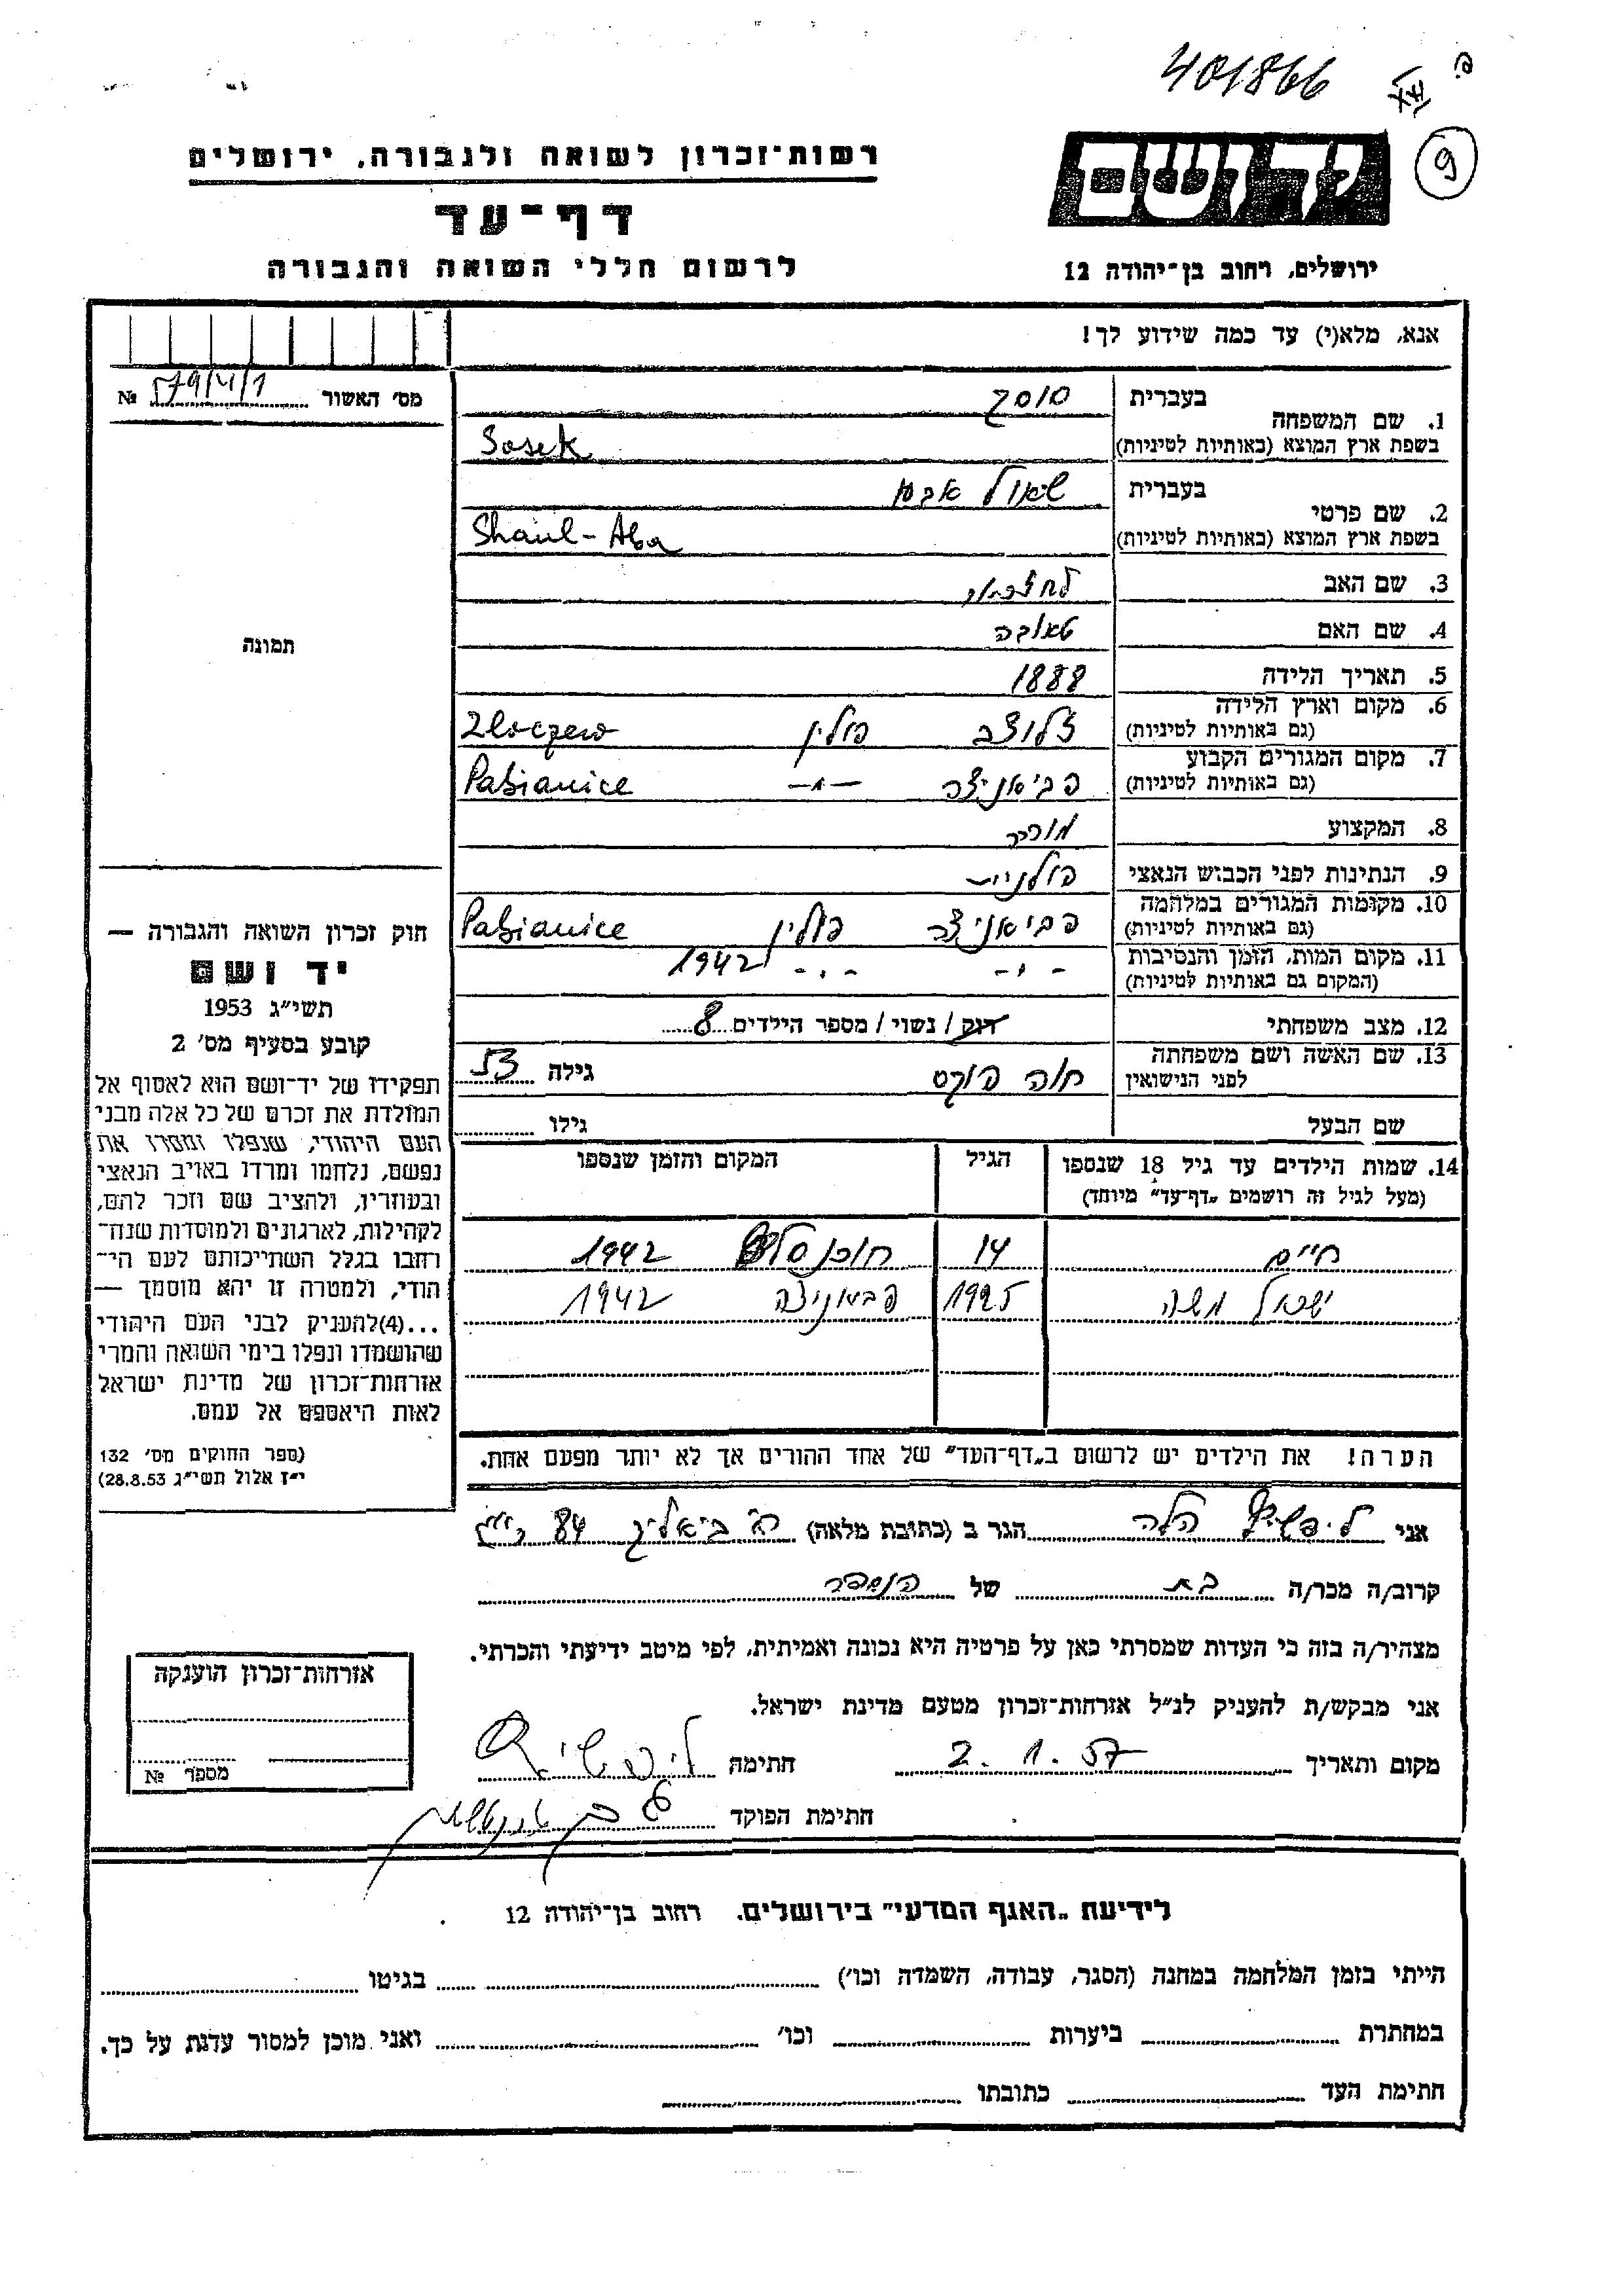 401866
9
יד ושם
רשות־זכרון לשואה ולגבורה, ירושלים
דף־עד
לרשום חללי השואה והגבורה
ירושלים, רחוב בן־יהודה 12
אנא, מלא(י) עד כמה שידוע לך!
מס׳ האשור №
1. שם המשפחה
בעברית סוסק
בשפת ארץ המוצא (באותיות לטיניות) Sosek
2. שם פרטי
בעברית שאול אבא
בשפת ארץ המוצא (באותיות לטיניות) Shaul-Aba
3. שם האב
4. שם האם טאובה
5. תאריך הלידה 1888
6. מקום וארץ הלידה
(גם באותיות לטיניות) פולין Zloczew
7. מקום המגורים הקבוע
(גם באותיות לטיניות) פביאניצה -"- Pabianice
8. המקצוע סוחר
9. הנתינות לפני הכבוש הנאצי פולנית
10. מקומות המגורים במלחמה
(גם באותיות לטיניות) פביאניצה פולין Pabianice
11. מקום המות, הזמן והנסיבות
(המקום גם באותיות לטיניות) -"- -"- 1942
12. מצב משפחתי רוק / נשוי / מספר הילדים 8
13. שם האשה ושם משפחתה
לפני הנישואין חוה גילה 53
שם הבעל גילו
14. שמות הילדים עד גיל 18 שנספו הגיל המקום והזמן שנספו
(מעל לגיל זה רושמים „דף־עד” מיוחד)
חיים 14 1942
ישראל משה 1925 פביאניצה 1942
הערה! את הילדים יש לרשום ב„דף־העד” של אחד ההורים אך לא יותר מפעם אחת.
אני ליפשיץ הלה הגר ב (כתובת מלאה) ביאליק 84
קרוב/ה מכר/ה בת של הנספה
מצהיר/ה בזה כי העדות שמסרתי כאן על פרטיה היא נכונה ואמיתית, לפי מיטב ידיעתי והכרתי.
אני מבקש/ת להעניק לנ״ל אזרחות־זכרון מטעם מדינת ישראל.
מקום ותאריך 2.1.57 חתימה ליפשיץ
חתימת הפוקד
תמונה
חוק זכרון השואה והגבורה —
יד ושם
תשי״ג 1953
קובע בסעיף מס׳ 2
תפקידו של יד־ושם הוא לאסוף אל
המולדת את זכרם של כל אלה מבני
העם היהודי, שנפלו ומסרו את
נפשם, נלחמו ומרדו באויב הנאצי
ובעוזריו, ולהציב שם וזכר להם,
לקהילות, לארגונים ולמוסדות שנח־
רחבו בגלל השתייכותם לעם הי־
הודי, ולמטרה זו יהא מוסמך —
...(4)להעניק לבני העם היהודי
שהושמדו ונפלו בימי השואה והמרי
אזרחות־זכרון של מדינת ישראל
לאות היאספם אל עמם.
(ספר החוקים מס׳ 132
י״ז אלול תשי״ג 28.8.53)
אזרחות־זכרון הוענקה
מספר №
לידיעת „האגף המדעי” בירושלים. רחוב בן־יהודה 12
הייתי בזמן המלחמה במחנה (הסגר, עבודה, השמדה וכו׳) בגיטו
במחתרת ביערות וכו׳ ואני מוכן למסור עדות על כך.
חתימת העד כתובתו